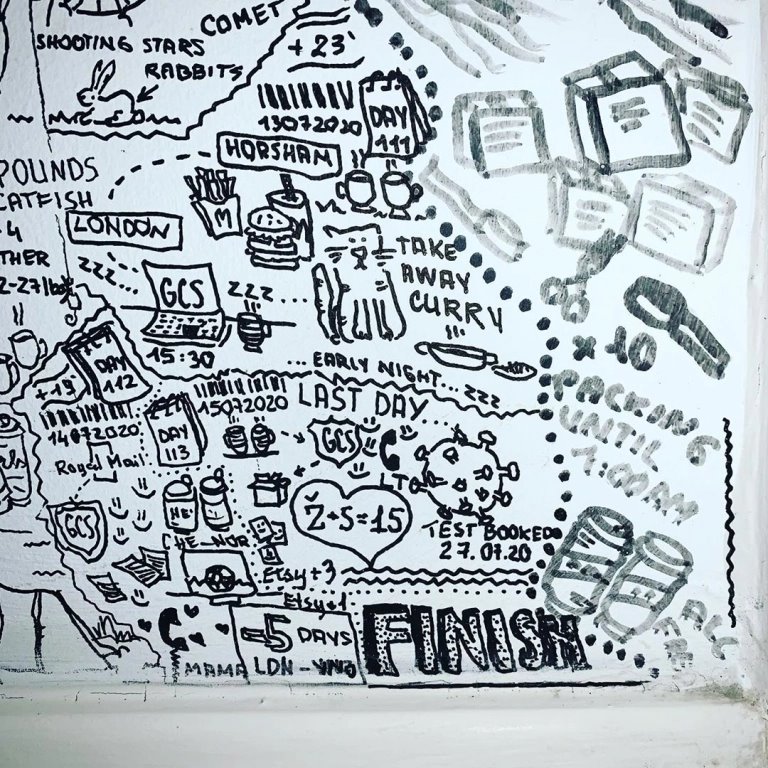 COMET
SHOOTING STARS
RABBITS
+23'
13072020
DAY
111
HORSHAM
POUNDS
CATFISH
4
THER
LONDON
M
TAKE
AWAY
CURRY
zzz...
GCS
zzz....
15:30
... EARLY NIGHT... zzz
x 10
PACKING
UNTIL
1:00AM
DAY
112
14072020
Royal Mail
GCS
15072020
DAY
113
LAST DAY
GCS
LTC
Ž+S=15
TEST BOOKED
27.07.20
CHE_NOR
Etsy+3
Etsy+1
-5 DAYS
MAMA
LDN - VNO
FINISH
ALC
FREE